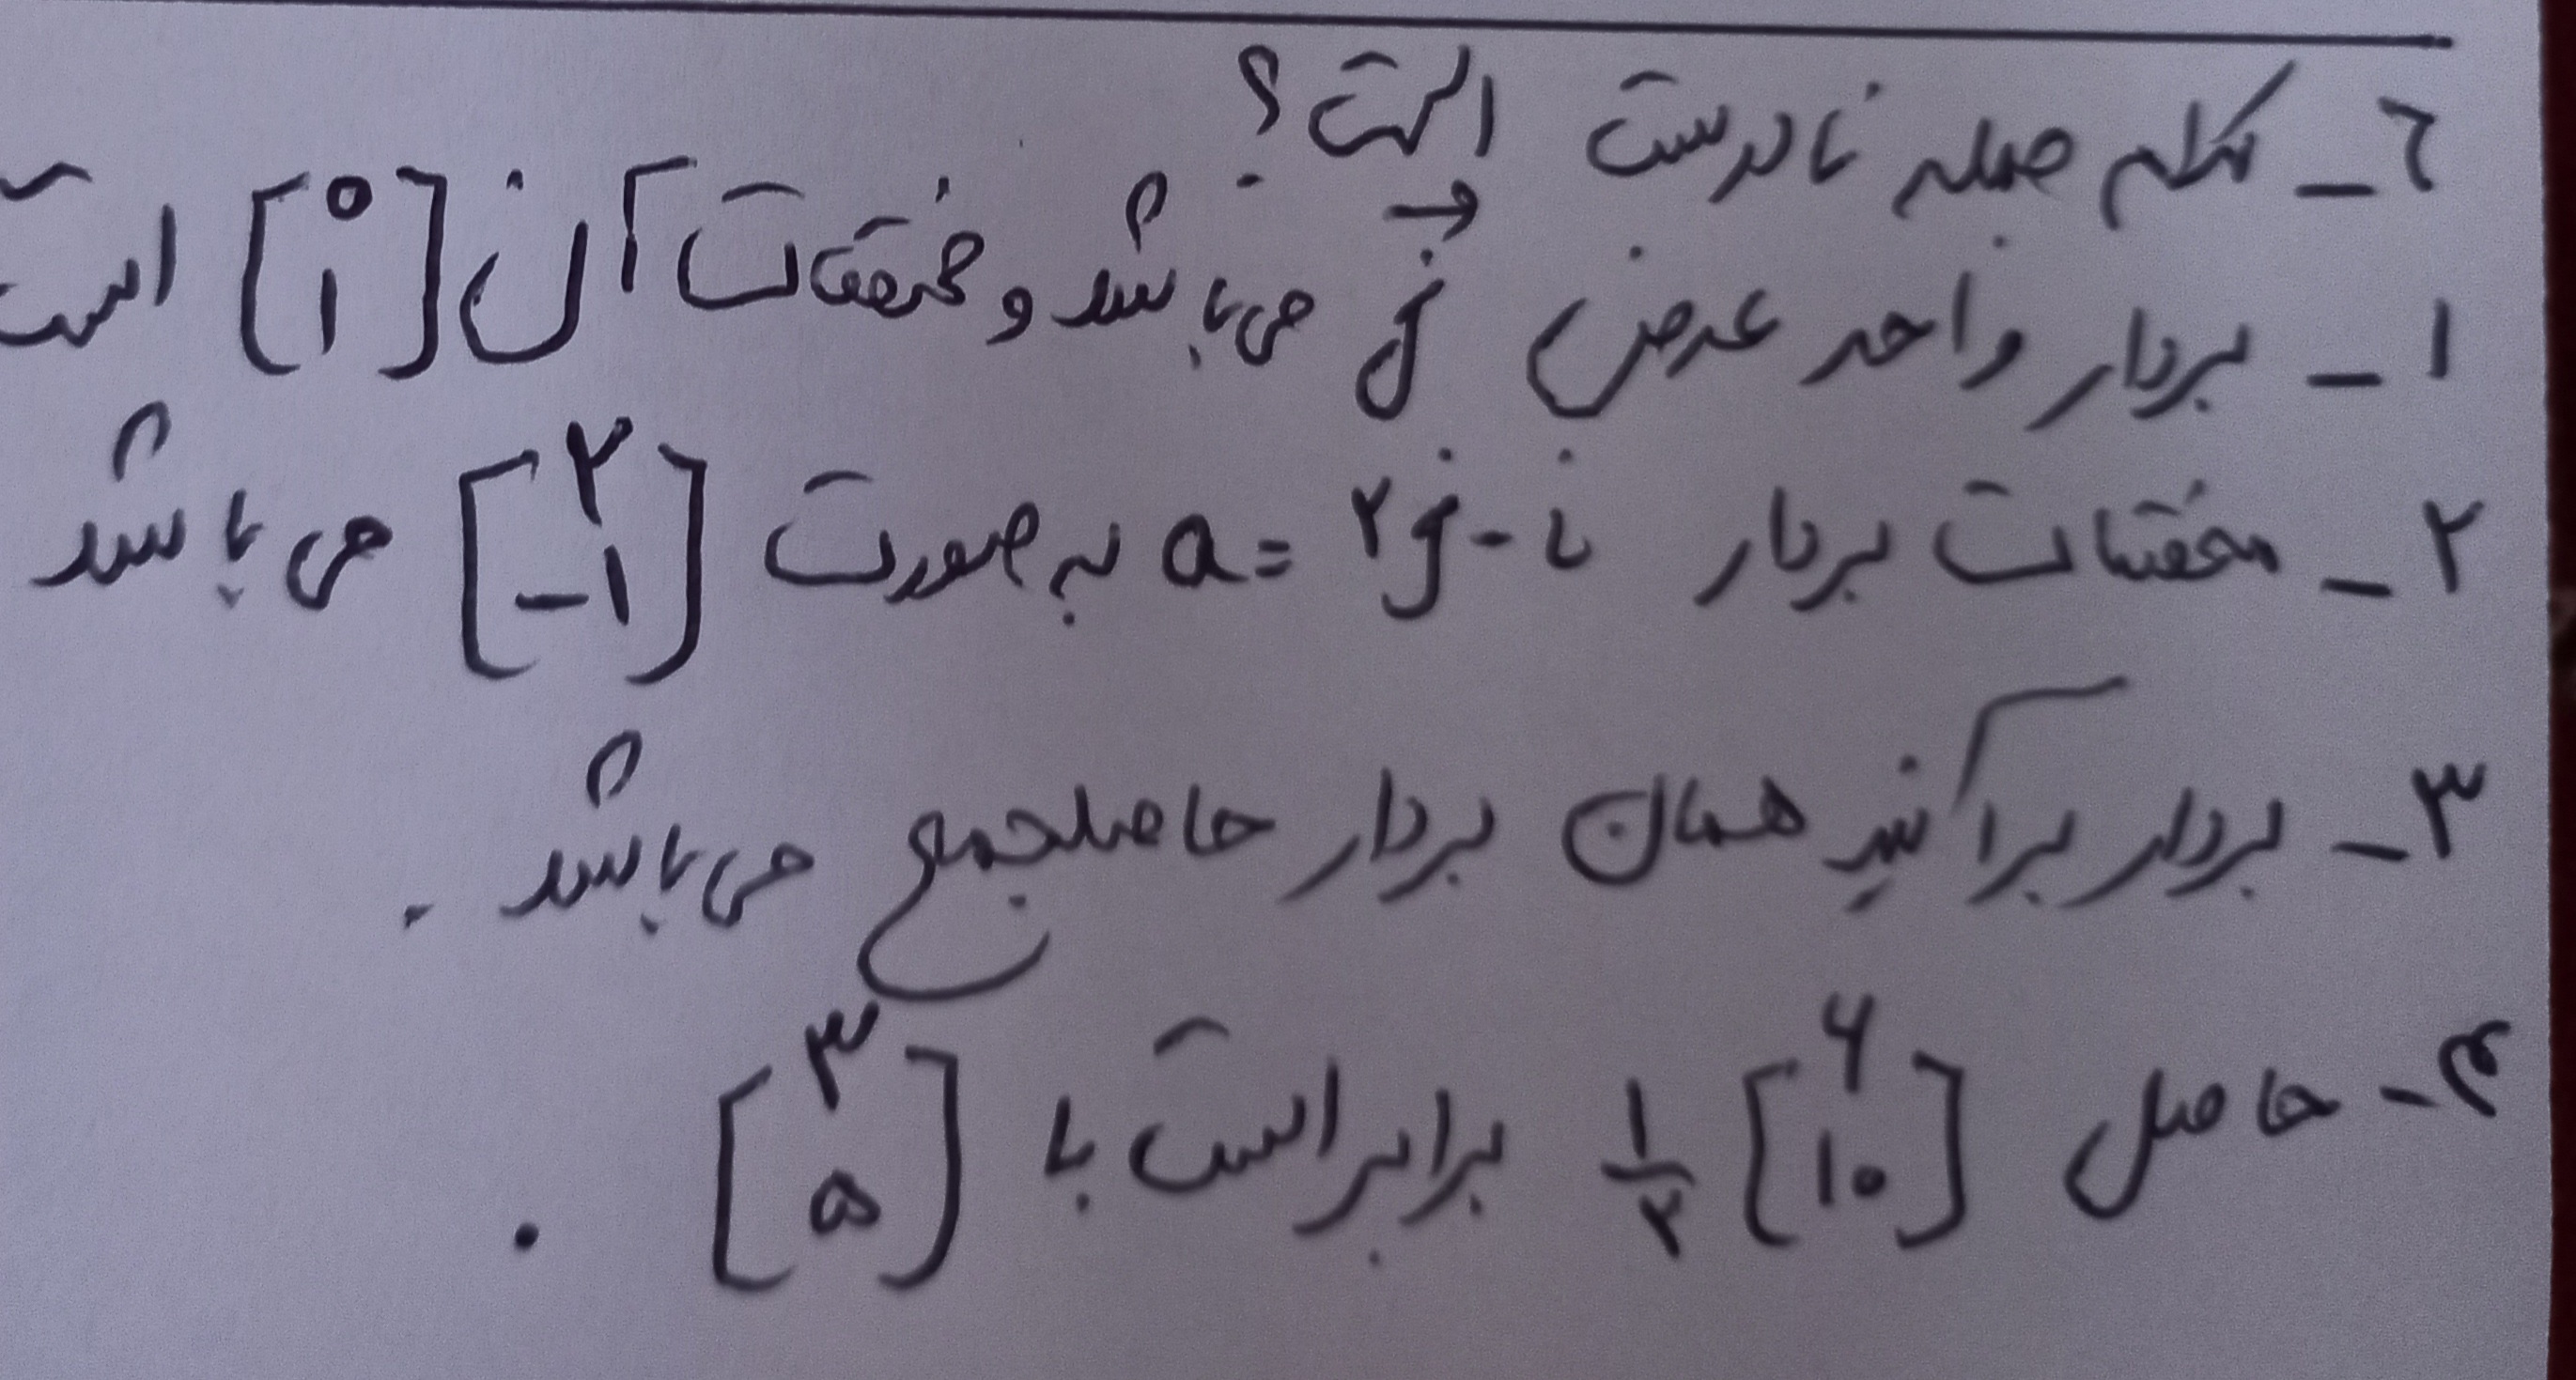 ۶ـ کدام جمله نادرست است؟
۱ـ بردار واحد عرض j می باشد و مختصات آن [۰ ۱] است
۲ـ مختصات بردار a = ۲j - i به صورت [۲ -۱] می باشد
۳ـ بردار برآیند همان بردار حاصلجمع می باشد .
۴ـ حاصل ۱/۲ [۶ ۱۰] برابر است با [۳ ۵] .